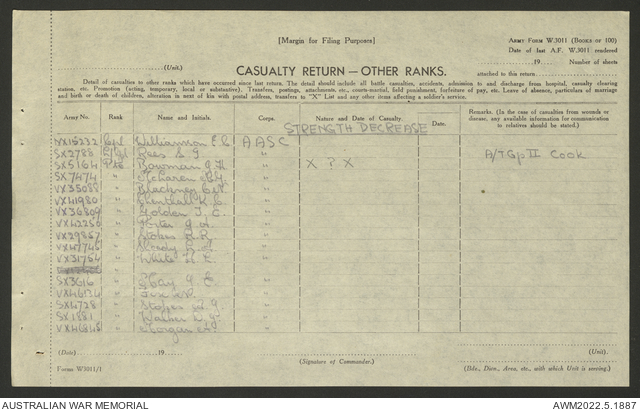 [Margin for Filing Purposes]
Army Form W.3011 (Books of 100)
Date of last A.F. W.3011 rendered
(Unit.)
19 Number of sheets
CASUALTY RETURN — OTHER RANKS.
attached to this return
Detail of casualties to other ranks which have occurred since last return. The detail should include all battle casualties, accidents, admission to and discharge from hospital, casualty clearing
station, etc. Promotion (acting, temporary, local or substantive). Transfers, postings, attachments, etc., courts-martial, field punishment, forfeiture of pay, etc. Leave of absence, particulars of marriage
and birth or death of children, alteration in next of kin with postal address, transfers to "X" List and any other items affecting a soldier's service.
Army No. Rank Name and Initials. Corps. Nature and Date of Casualty. Date. Remarks. (In the case of casualties from wounds or disease, any available information for communication to relatives should be stated.)
STRENGTH DECREASE
Williamson E. C AASC
SX2788 Rees S. J A/T Gp II Cook
SX5164 Pte Bowman X ? X
SX7474 "
VX35088 " Blackney
VX41980 "
VX36809 " Golden J. C.
VX42250 "
VX29857 " Stokes
VX47746 "
VX31754 " White
SX3616 " Hay G. E
"
SX4728 "
SX1881 "
" Morgan
(Date) 19
(Signature of Commander.)
(Unit).
Form W3011/1
(Bde., Divn., Area, etc., with which Unit is serving.)
AUSTRALIAN WAR MEMORIAL
AWM2022.5.1887